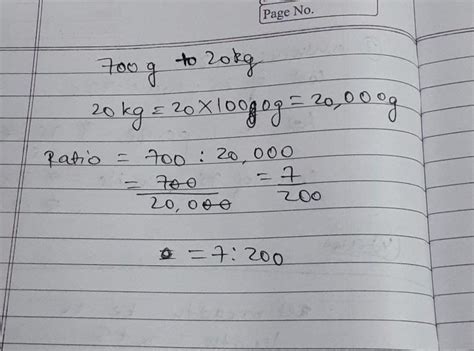 Page No.
700 g to 20kg
20 kg = 20 × 1000g = 20,000g
Ratio = 700 : 20,000
= 700/20,000 = 7/200
= 7 : 200